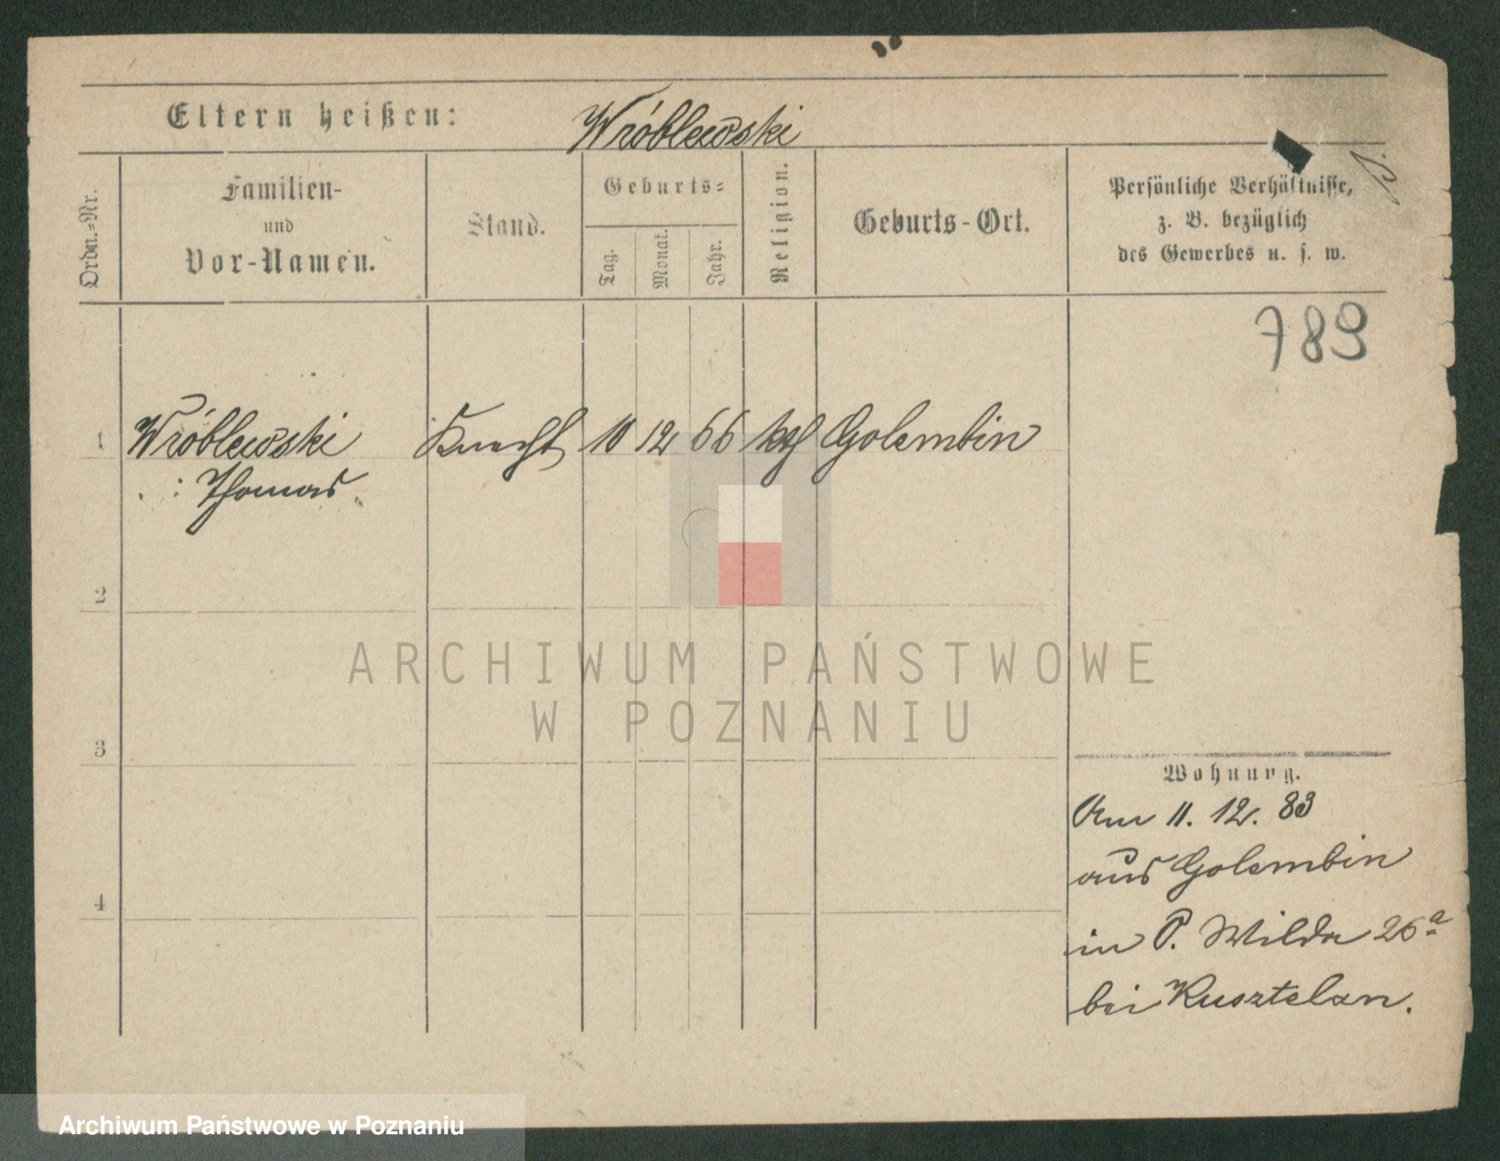 Eltern heißen: Wróblewski
Ordn.-Nr.
Familien-
und
Vor-Namen.
Stand.
Geburts-
Tag.
Monat.
Jahr.
Religion.
Geburts-Ort.
Persönliche Verhältnisse,
z. B. bezüglich
des Gewerbes u. s. w.
789
1 Wróblewski Knecht 10 12 66 kth Golembin
Thomas
2
ARCHIWUM PAŃSTWOWE
W POZNANIU
3
Wohnung.
Am 11. 12. 83
aus Golembin
4
in P. Wilda 26a
bei Kusztelan.
Archiwum Państwowe w Poznaniu